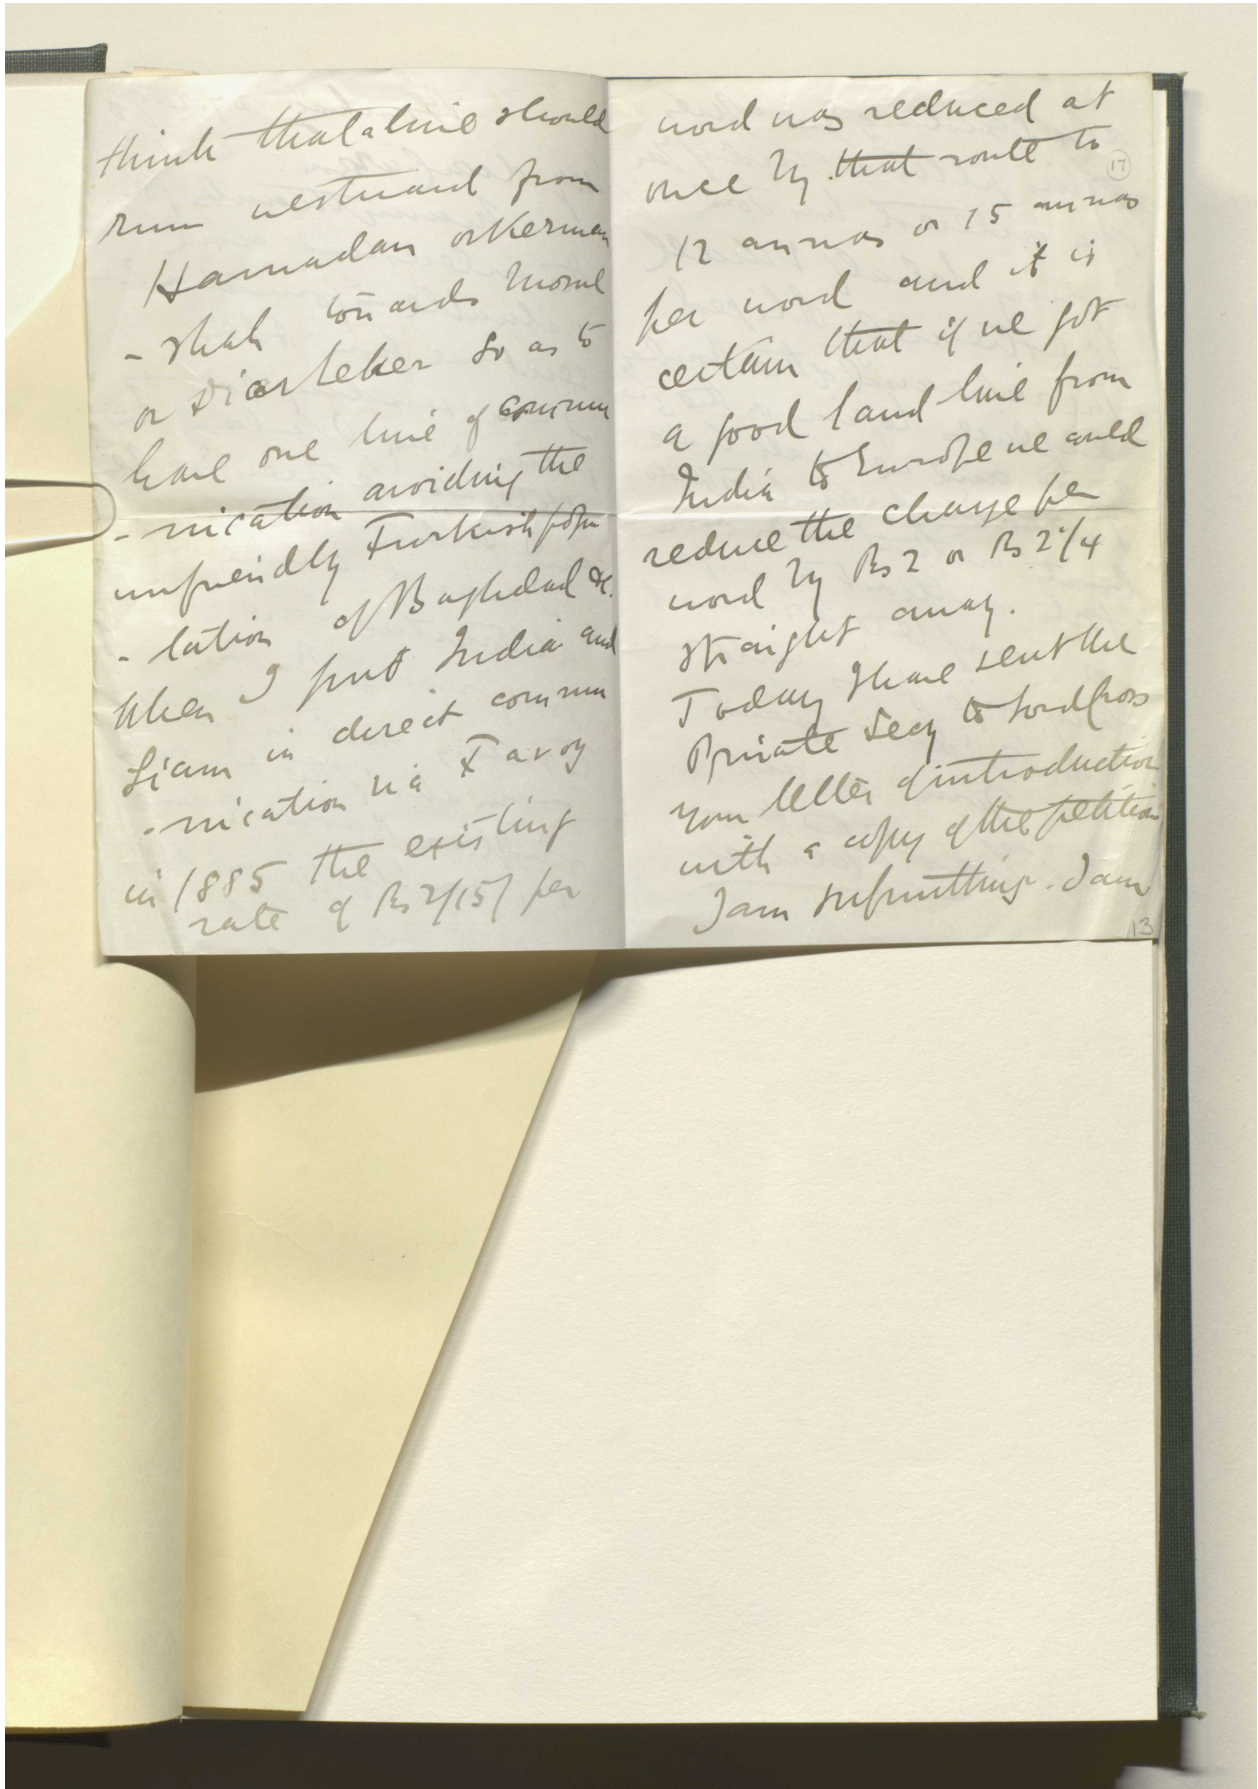 think that a line should
run westward from
Hamadan or Kerman
- shah towards Mosul
or Diarbeker so as to
have one line of commu
- nication avoiding the
unfriendly Turkish popu
- lation of Baghdad &c.
When I put India and
Siam in direct commu
- nication via Tavoy
in 1885 the existing
rate of Rs 2/15/ per
word was reduced at
once by that route to
17
12 annas or 15 annas
per word and it is
certain that if we got
a good land line from
India to Europe we could
reduce the charge per
word by Rs 2 or Rs 2/4
straight away.
Today I have sent the
Private Secy to Lord Cross
your letter of introduction
with a copy of the petition
I am submitting. I am
13